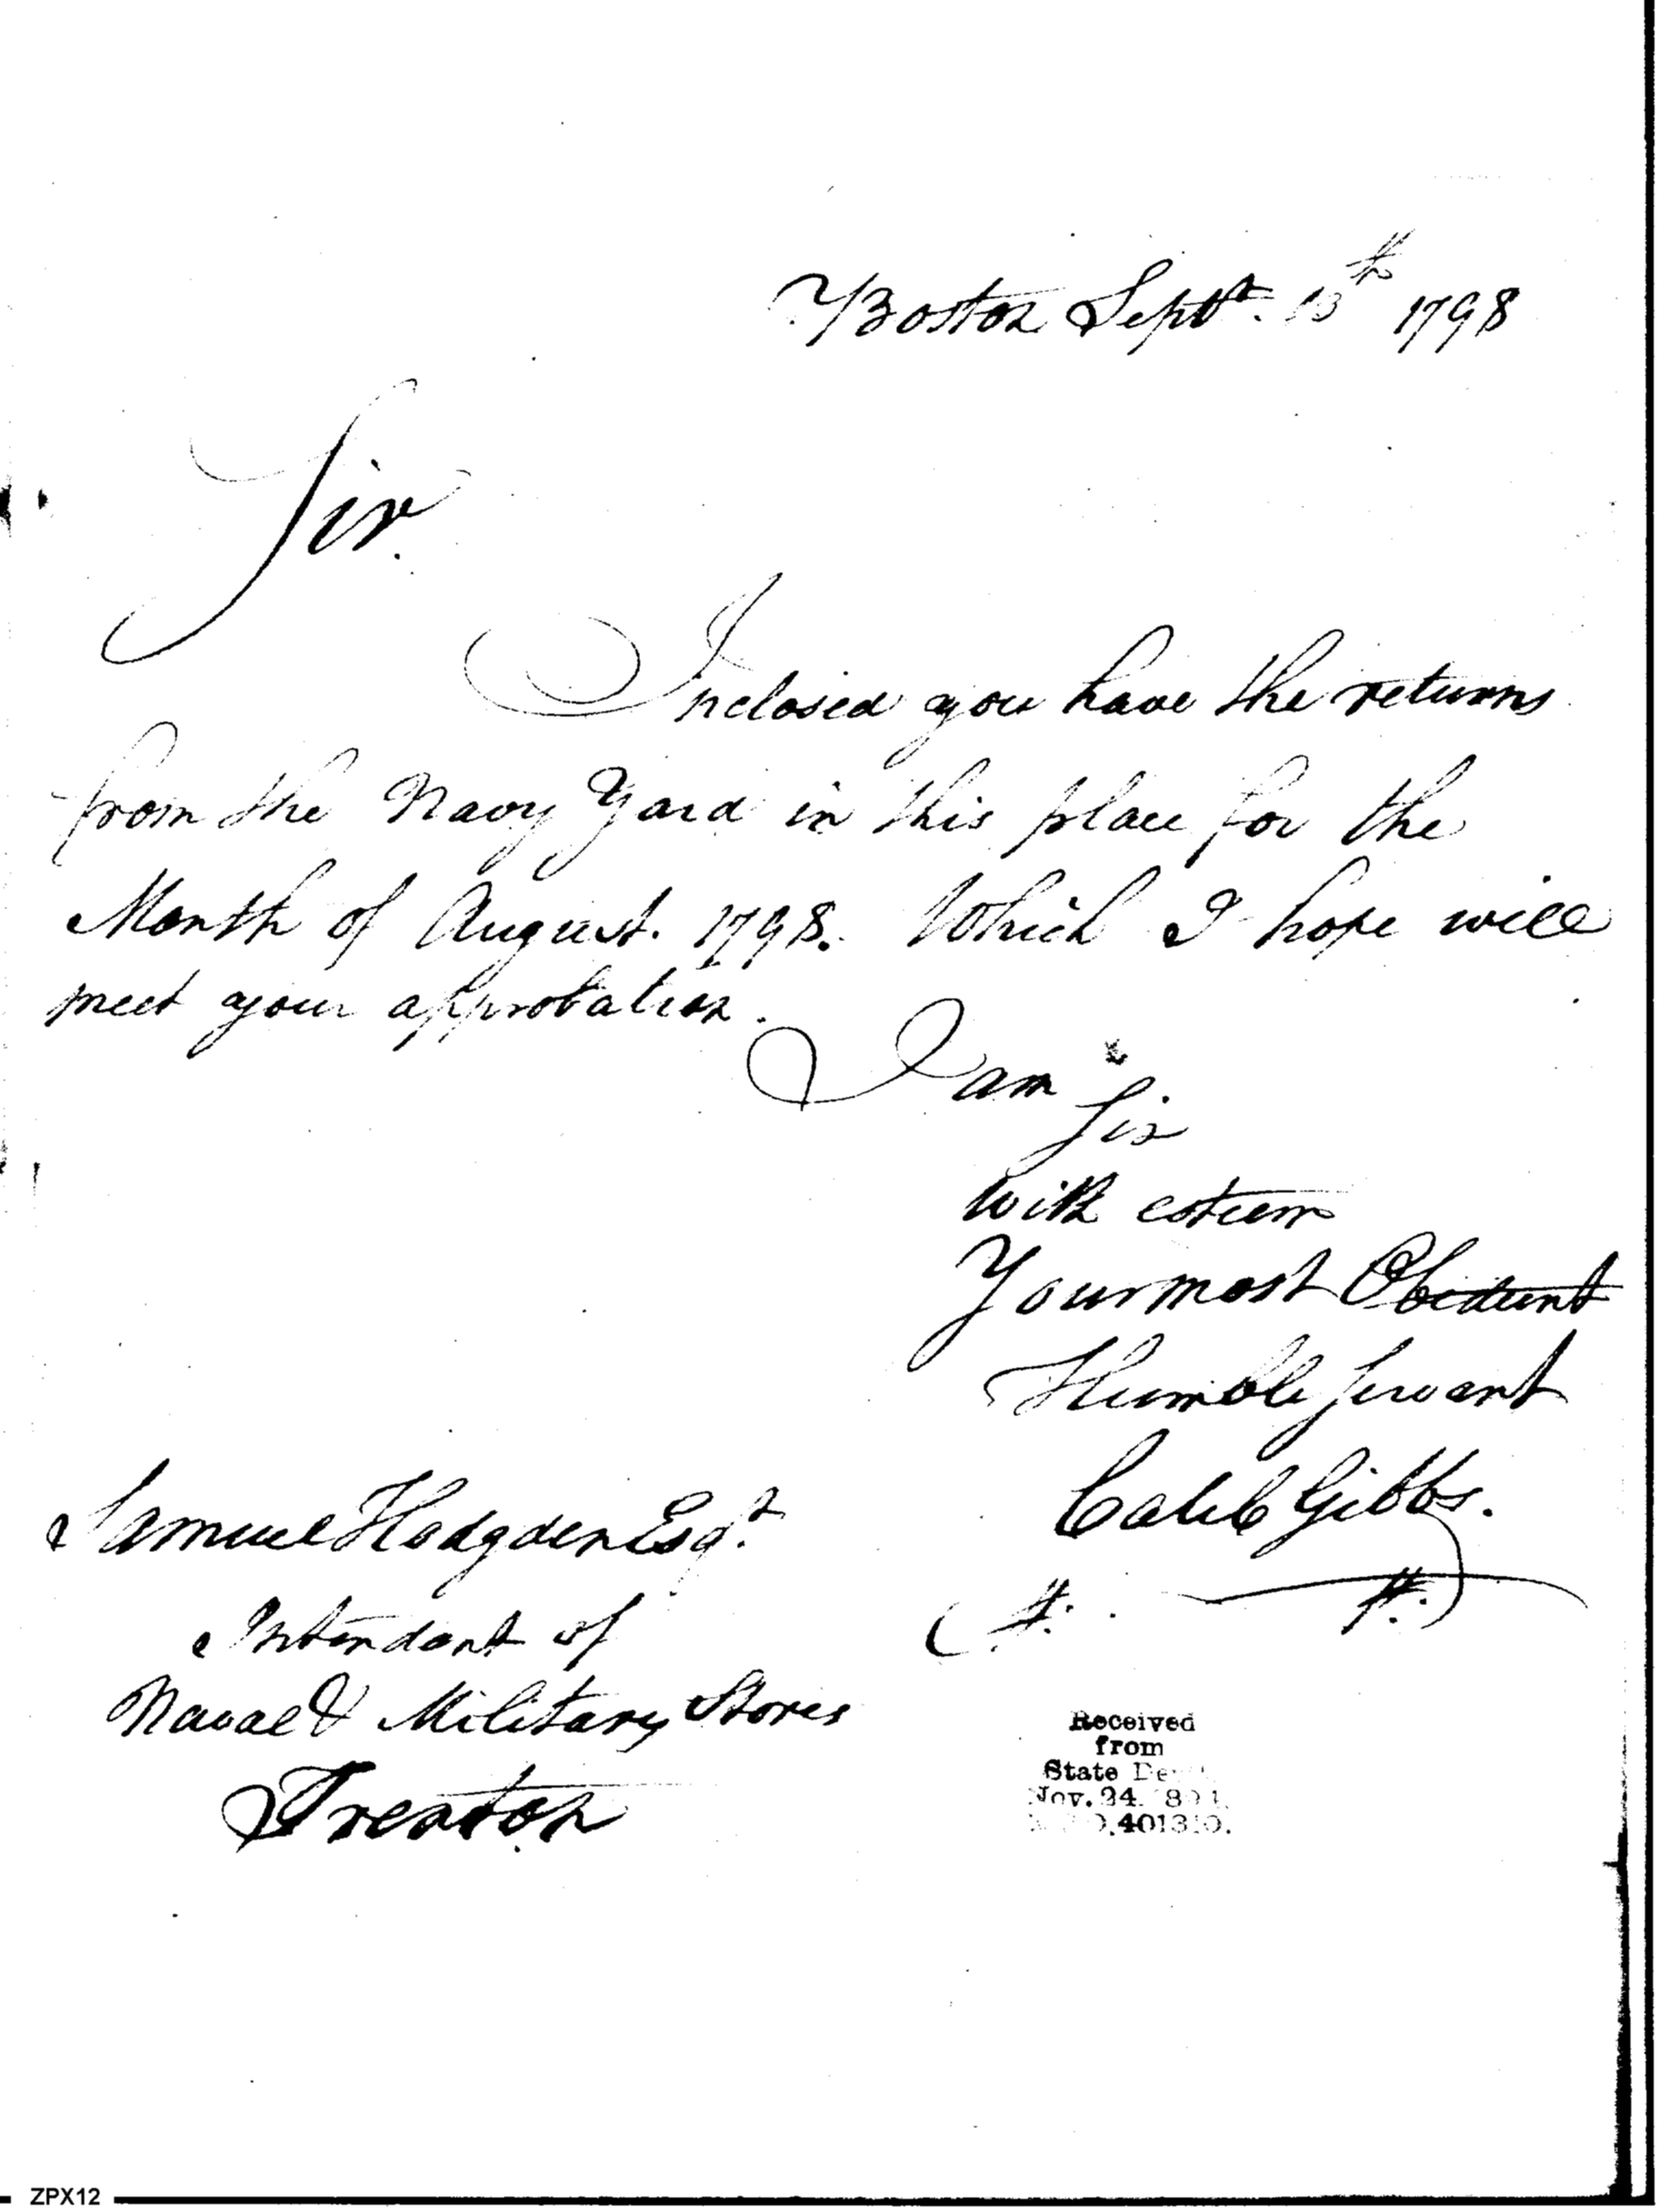 Boston Septr. 13th 1798
Sir.
Inclosed you have the returns
from the Navy Yard in this place for the
Month of August. 1798. Which I hope will
meet your approbation.
I am
Sir
with esteem
Your most Obedient
Humble Servant
Caleb Gibbs.
Samuel Hodgden Esqr.
Intendant of
Naval & Military Stores
Trenton
Received
from
State
Nov. 24.
ZPX12